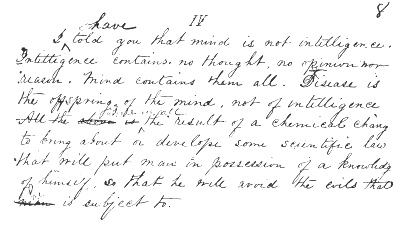 8
have IV
I told you that mind is not intelligence.
Intelligence contains no thought, no opinion nor
reason. Mind contains them all. Disease is
the offspring of the mind, not of intelligence
All the is the result of a chemical chang
to bring about or develope some scientific law
that will put man in possession of a knowledg
of himself, so that he will avoid the evils that
man is subject to.